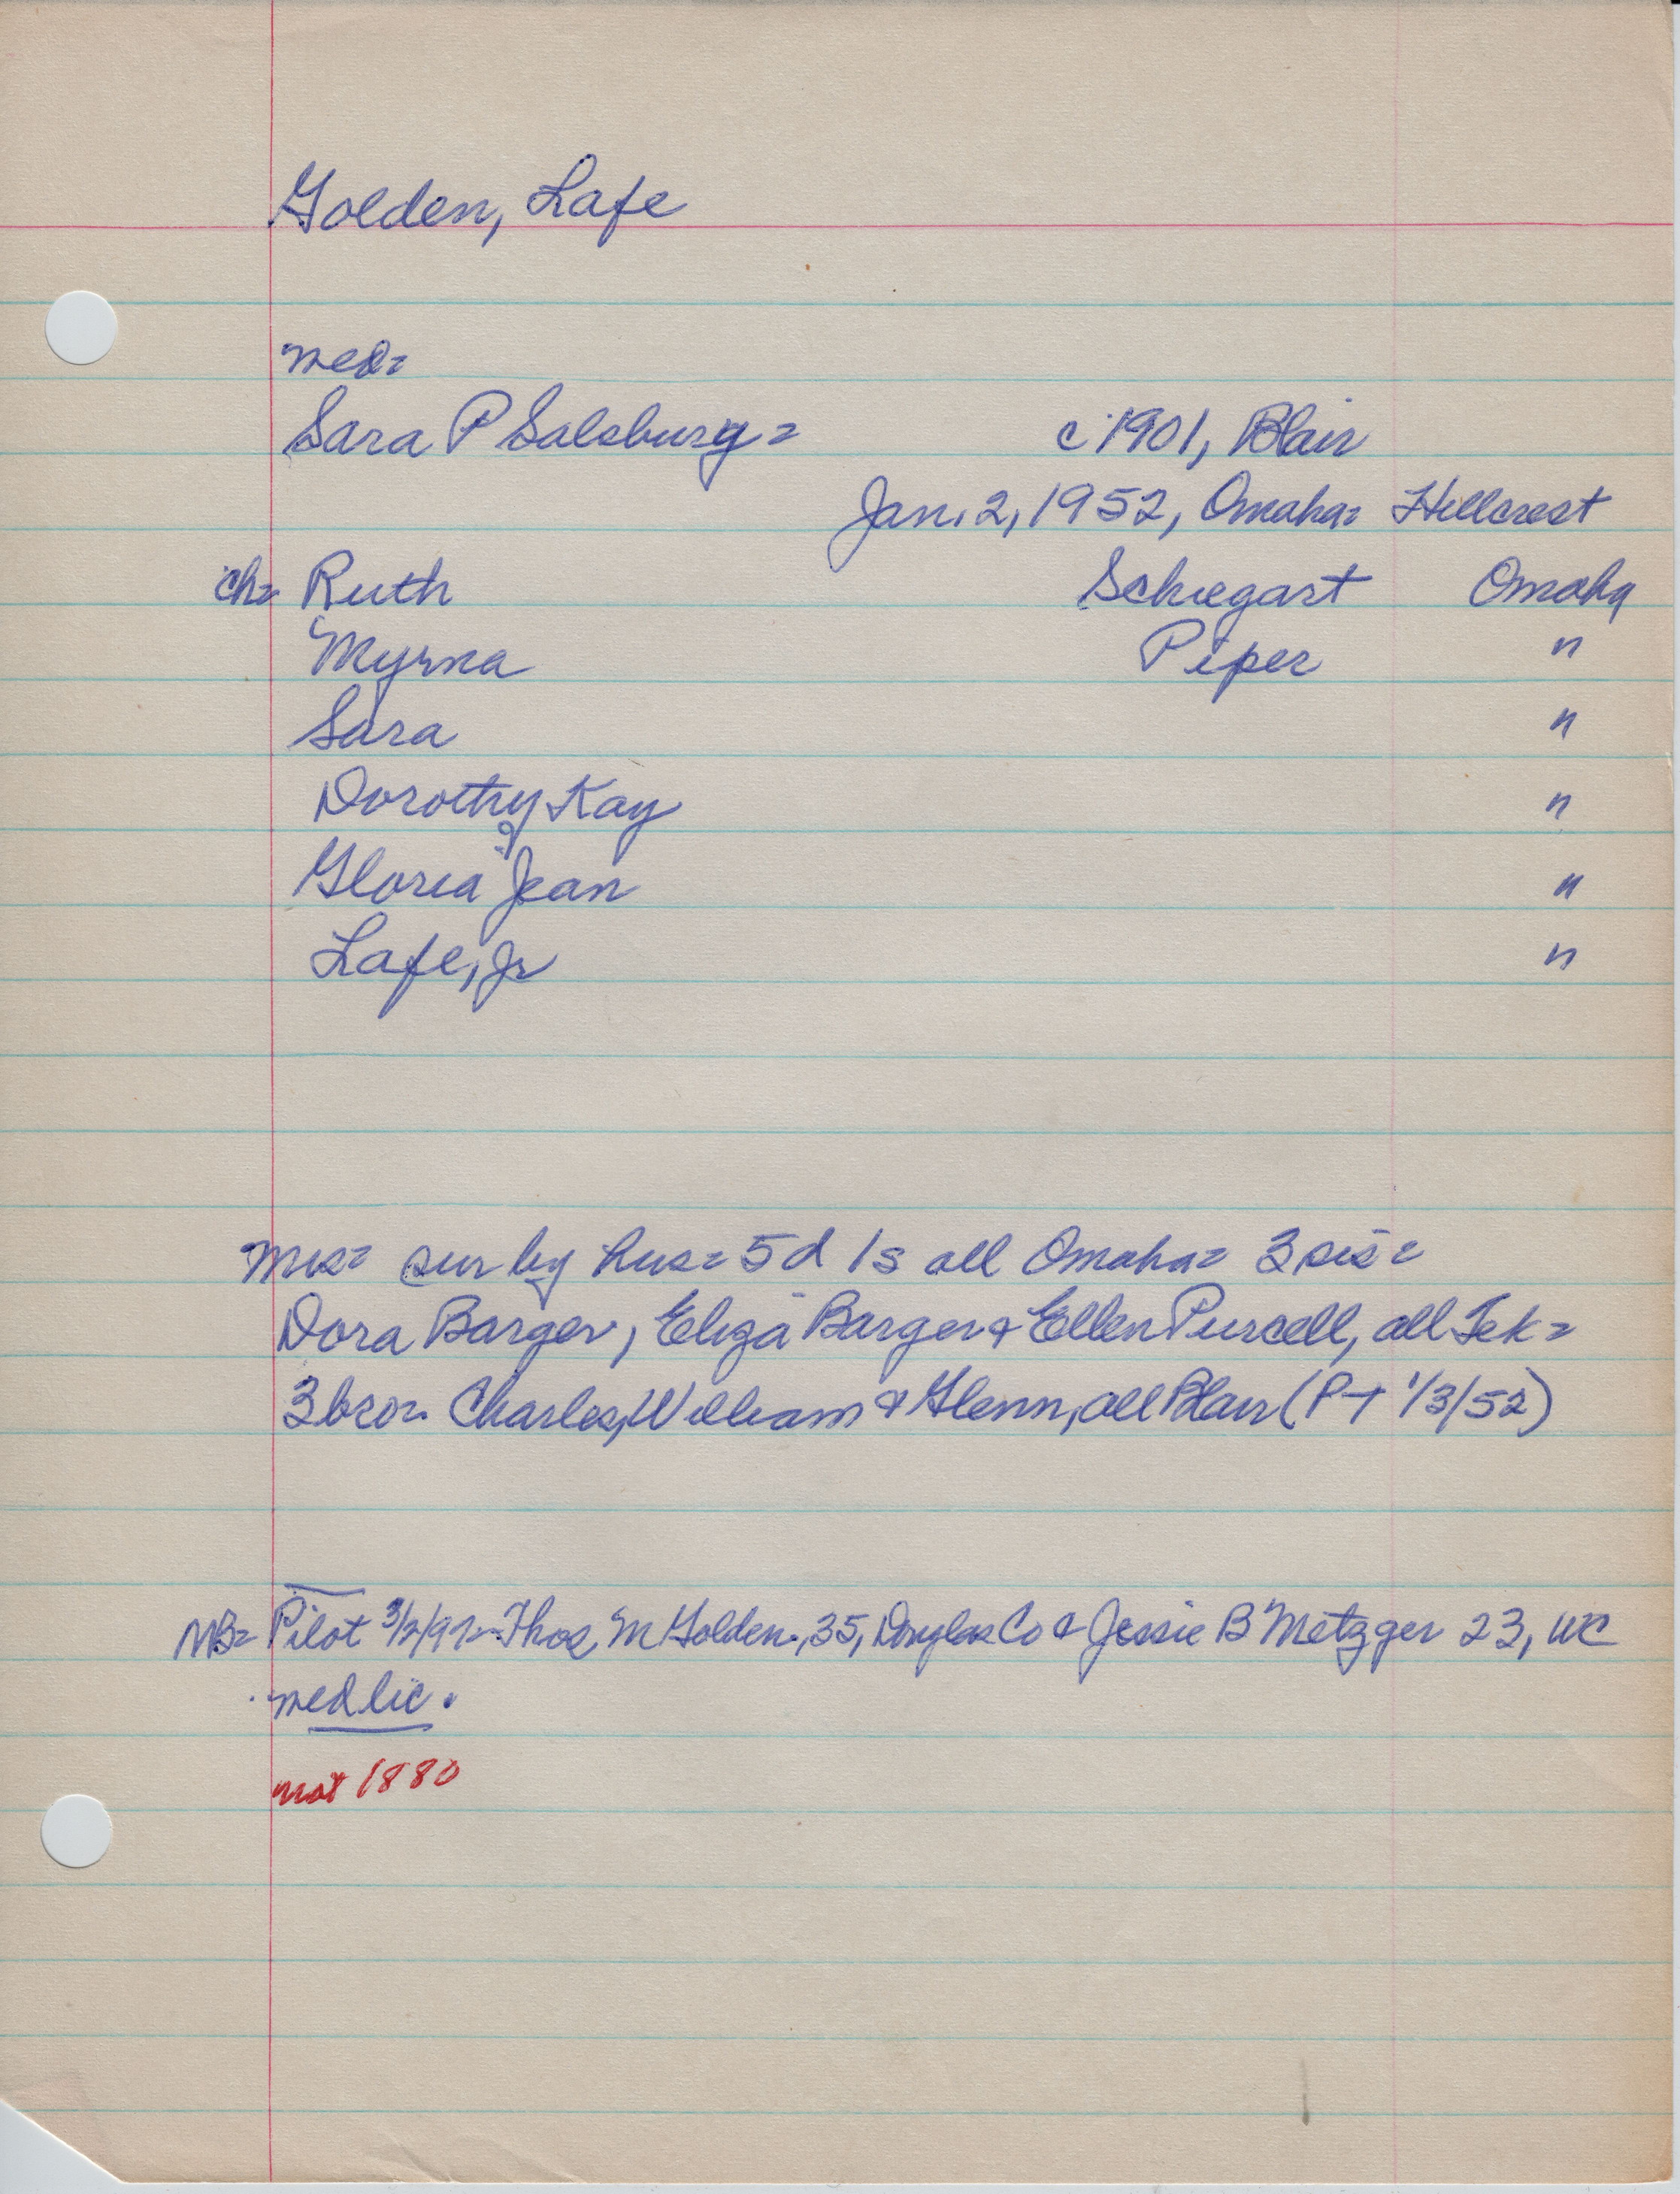 Golden, Lafe
med=
Sara P Salsburg= c 1901, Blair
Jan. 2, 1952, Omaha= Hillcrest
ch= Ruth Schiegart Omaha
Myrna Piper "
Sara "
Dorothy Kay "
Gloria Jean "
Lafe, Jr "
Mrs= sur by hus= 5 d 1 s all Omaha= 3 sis=
Dora Barger, Eliza Barger & Ellen Purcell, all Tek=
3 bro= Charles, William & Glenn, all Blair (P-T 1/3/52)
NB= Pilot Thos. M Golden, 35, Douglas Co & Jessie B Metzger 23, WC
med lic.
not 1880